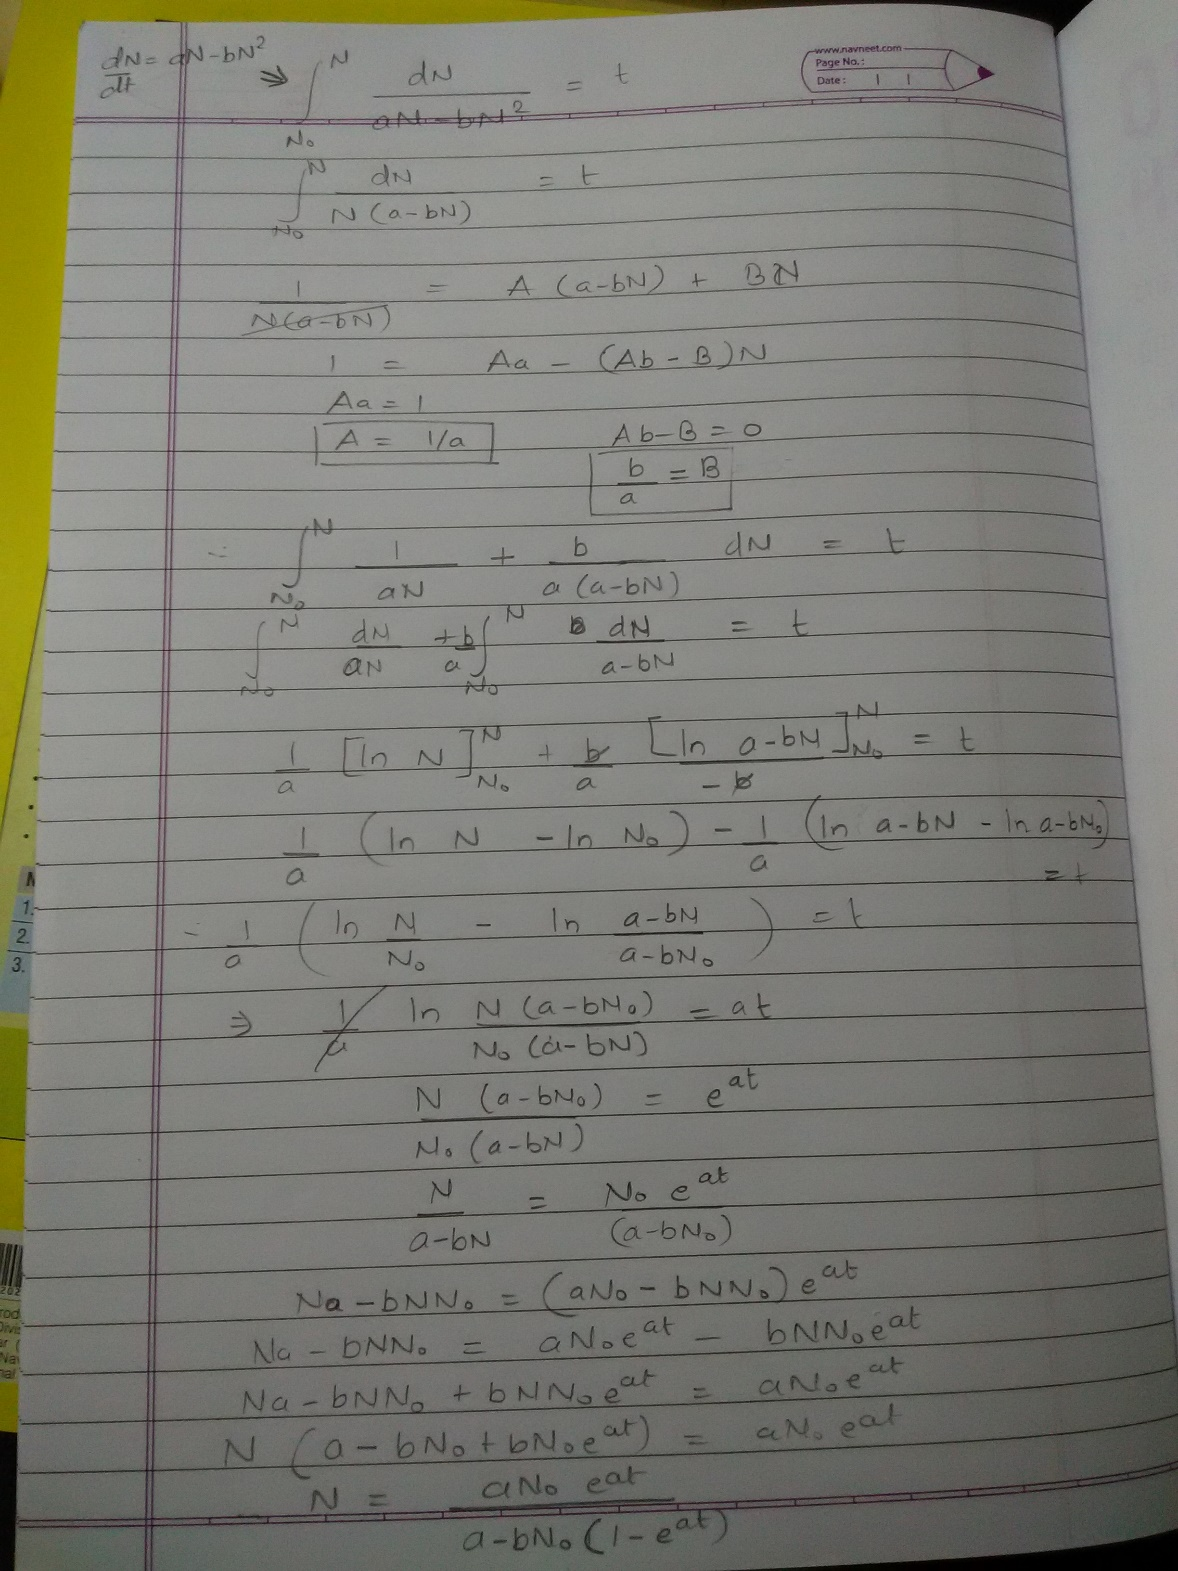 www.navneet.com
Page No.:
Date:
dN/dt = aN-bN² ⇒ ∫_{N₀}^{N} dN/(aN-bN²) = t
∫_{N₀}^{N} dN/(N(a-bN)) = t
1/(N(a-bN)) = A(a-bN) + BN
1 = Aa - (Ab-B)N
Aa = 1
A = 1/a
Ab-B = 0
b/a = B
∴ ∫_{N₀}^{N} 1/(aN) + b/(a(a-bN)) dN = t
∫_{N₀}^{N} dN/(aN) + b/a ∫_{N₀}^{N} dN/(a-bN) = t
1/a [ln N]_{N₀}^{N} + b/a [ln a-bN]_{N₀}^{N}/(-b) = t
1/a (ln N - ln N₀) - 1/a (ln a-bN - ln a-bN₀)
= t
∴ 1/a (ln N/N₀ - ln (a-bN)/(a-bN₀)) = t
⇒ 1/a ln N(a-bN₀)/(N₀(a-bN)) = at
N(a-bN₀)/(N₀(a-bN)) = e^{at}
N/(a-bN) = N₀e^{at}/(a-bN₀)
Na-bNN₀ = (aN₀-bNN₀)e^{at}
Na-bNN₀ = aN₀e^{at} - bNN₀e^{at}
Na-bNN₀ + bNN₀e^{at} = aN₀e^{at}
N(a-bN₀+bN₀e^{at}) = aN₀e^{at}
N = aN₀e^{at}/(a-bN₀(1-e^{at}))
1.
2.
3.